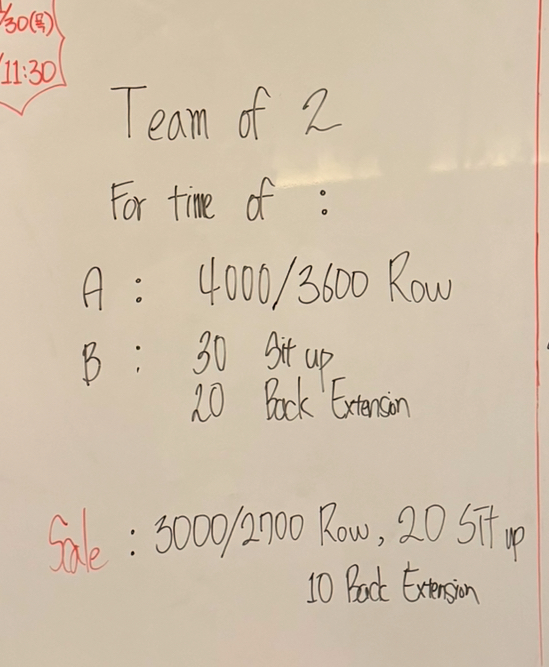 /30(목)
/11:30
Team of 2
For time of :
A : 4000/3600 Row
B : 30 Sit up
20 Back Extension
Scale : 3000/2700 Row, 20 Sit up
10 Back Extension